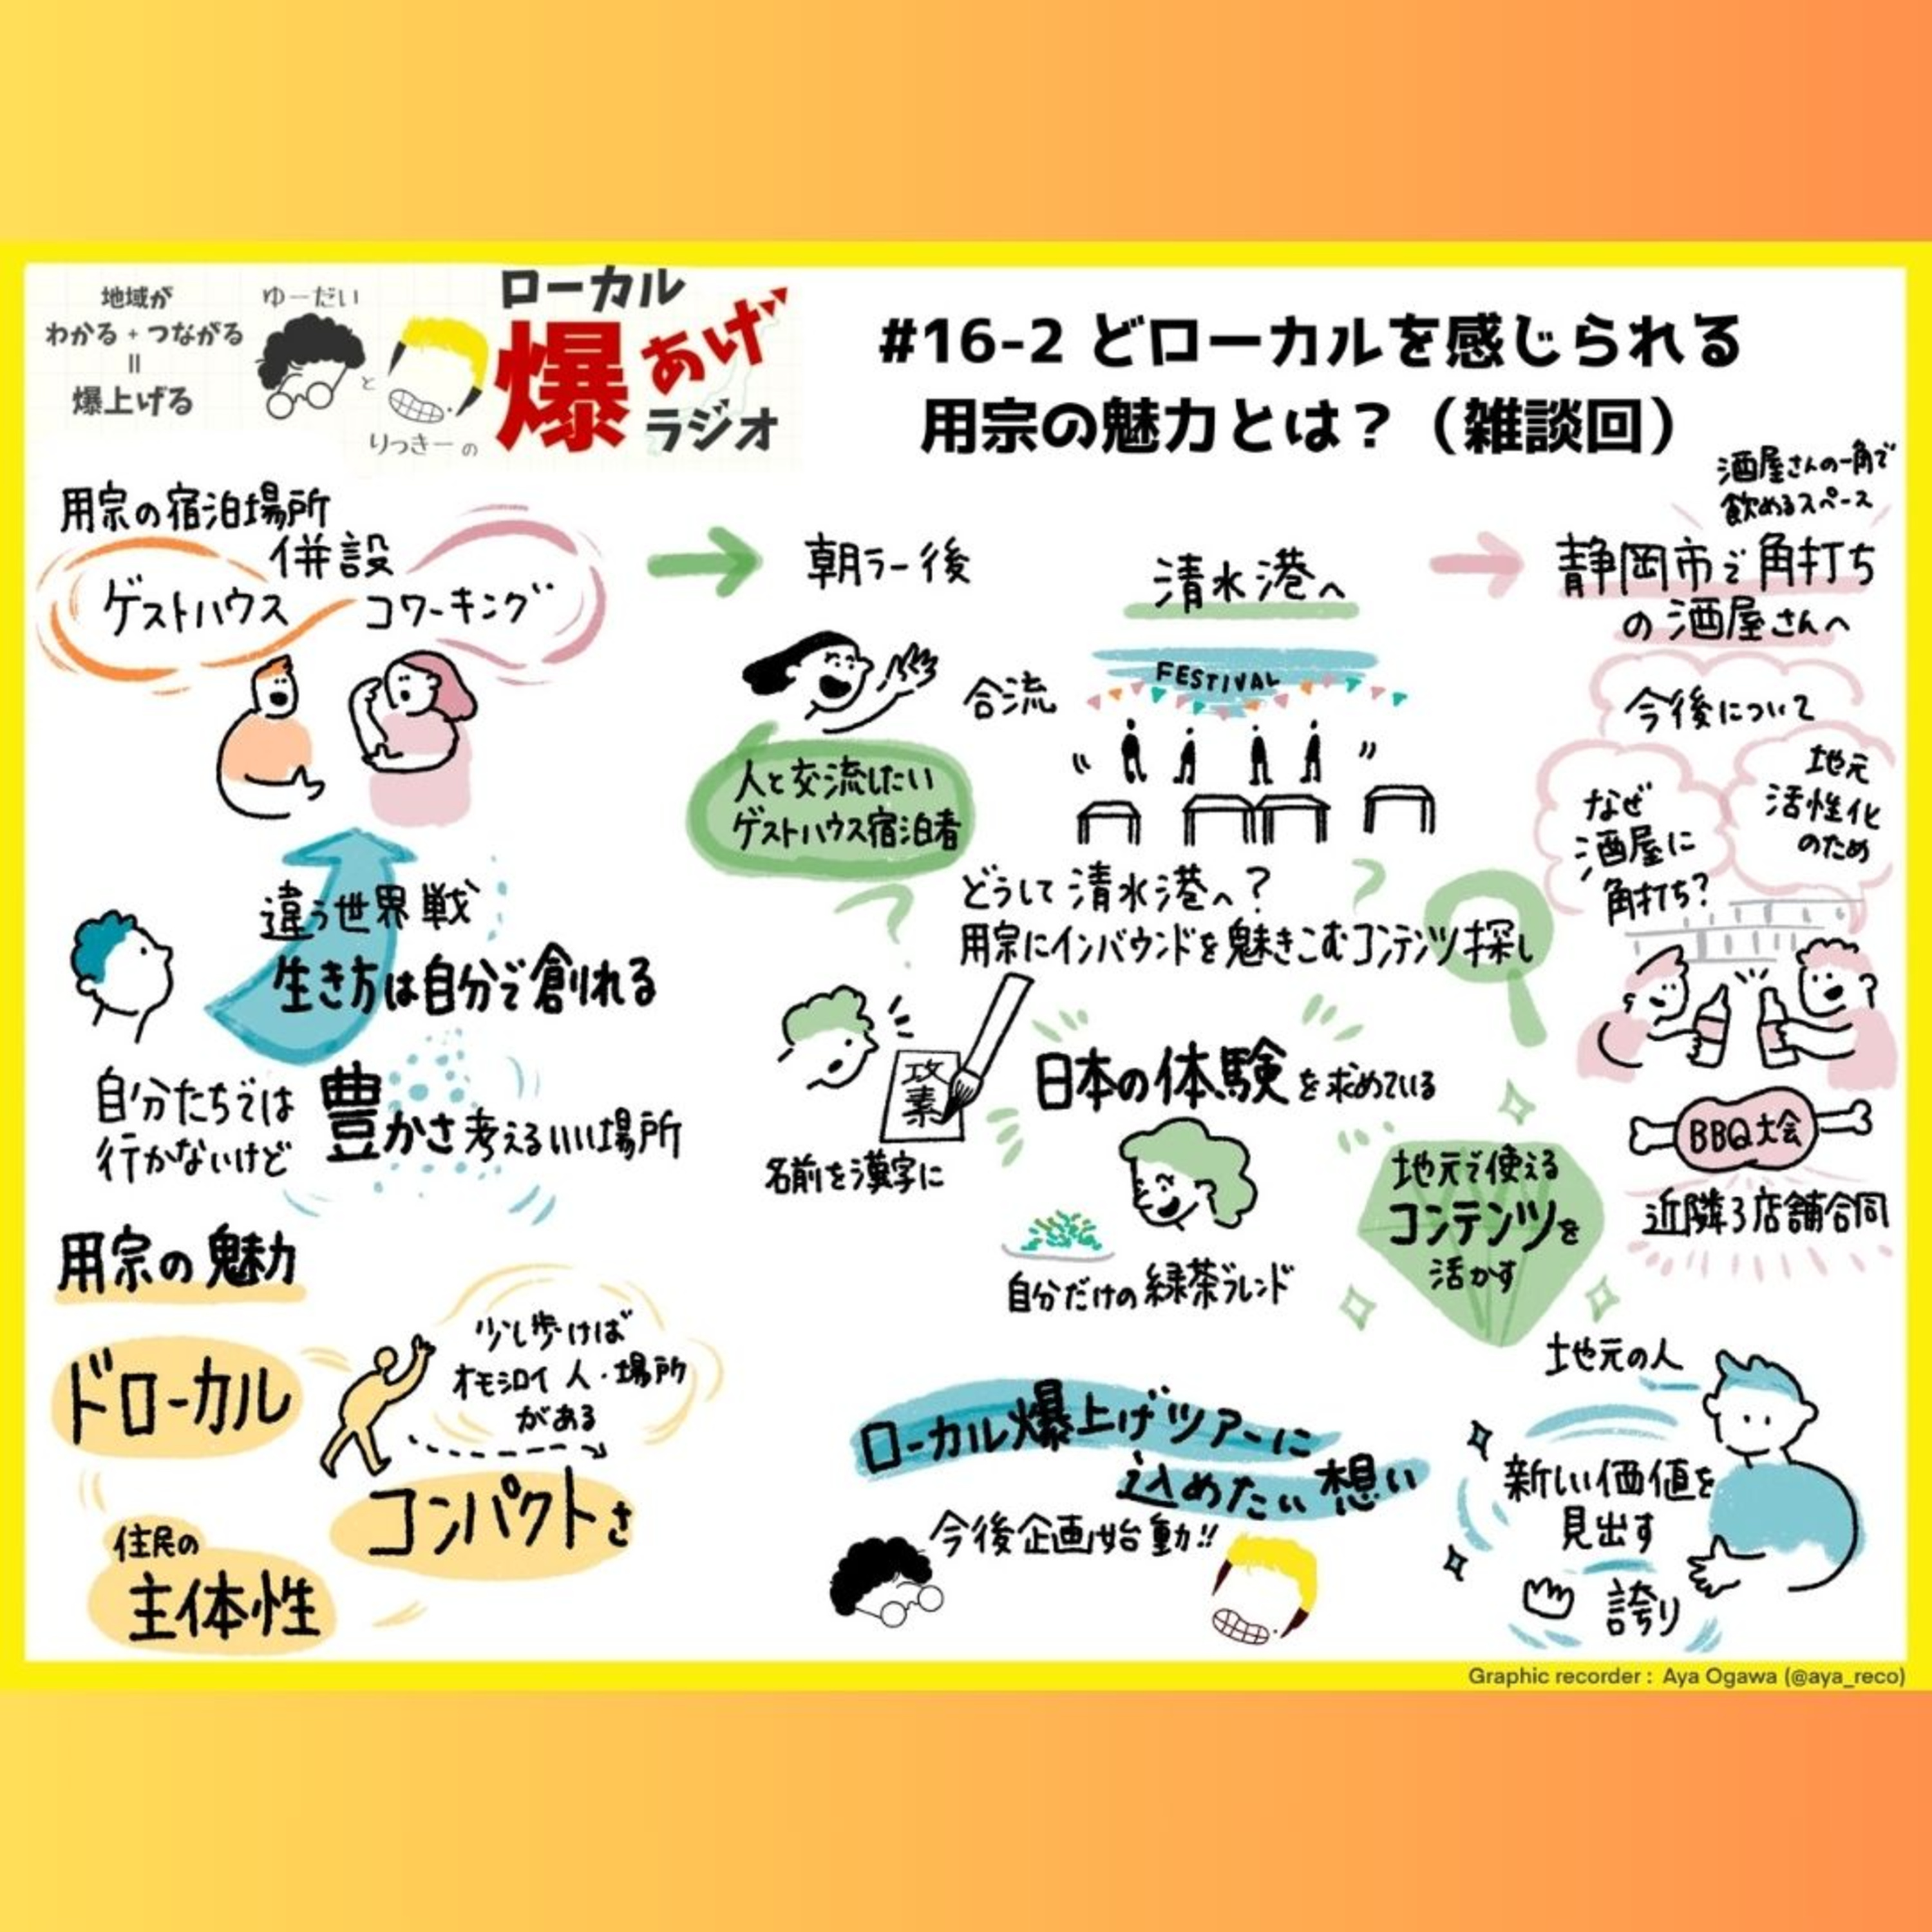 地域が
わかる+つながる
=
爆上げる
ゆーだい
と
りっきーの
ローカル
爆あげ
ラジオ
#16-2 どローカルを感じられる
用宗の魅力とは？（雑談回）
用宗の宿泊場所
併設
ゲストハウス
コワーキング
違う世界戦
生き方は自分で創れる
自分たちでは
行かないけど
豊かさ考えるいい場所
用宗の魅力
ドローカル
少し歩けば
オモシロイ人・場所
がある
コンパクトさ
住民の
主体性
朝ラー後
清水港へ
合流
FESTIVAL
人と交流したい
ゲストハウス宿泊者
どうして清水港へ?
用宗にインバウンドを魅きこむコンテンツ探し
攻
素
名前を漢字に
日本の体験を求めている
自分だけの緑茶ブレンド
地元で使える
コンテンツを
活かす
酒屋さんの一角で
飲めるスペース
静岡市で角打ち
の酒屋さんへ
今後について
なぜ
酒屋に
角打ち?
地元
活性化
のため
BBQ大会
近隣3店舗合同
ローカル爆上げツアーに
込めたい想い
今後企画始動!!
地元の人
新しい価値を
見出す
誇り
Graphic recorder : Aya Ogawa (@aya_reco)